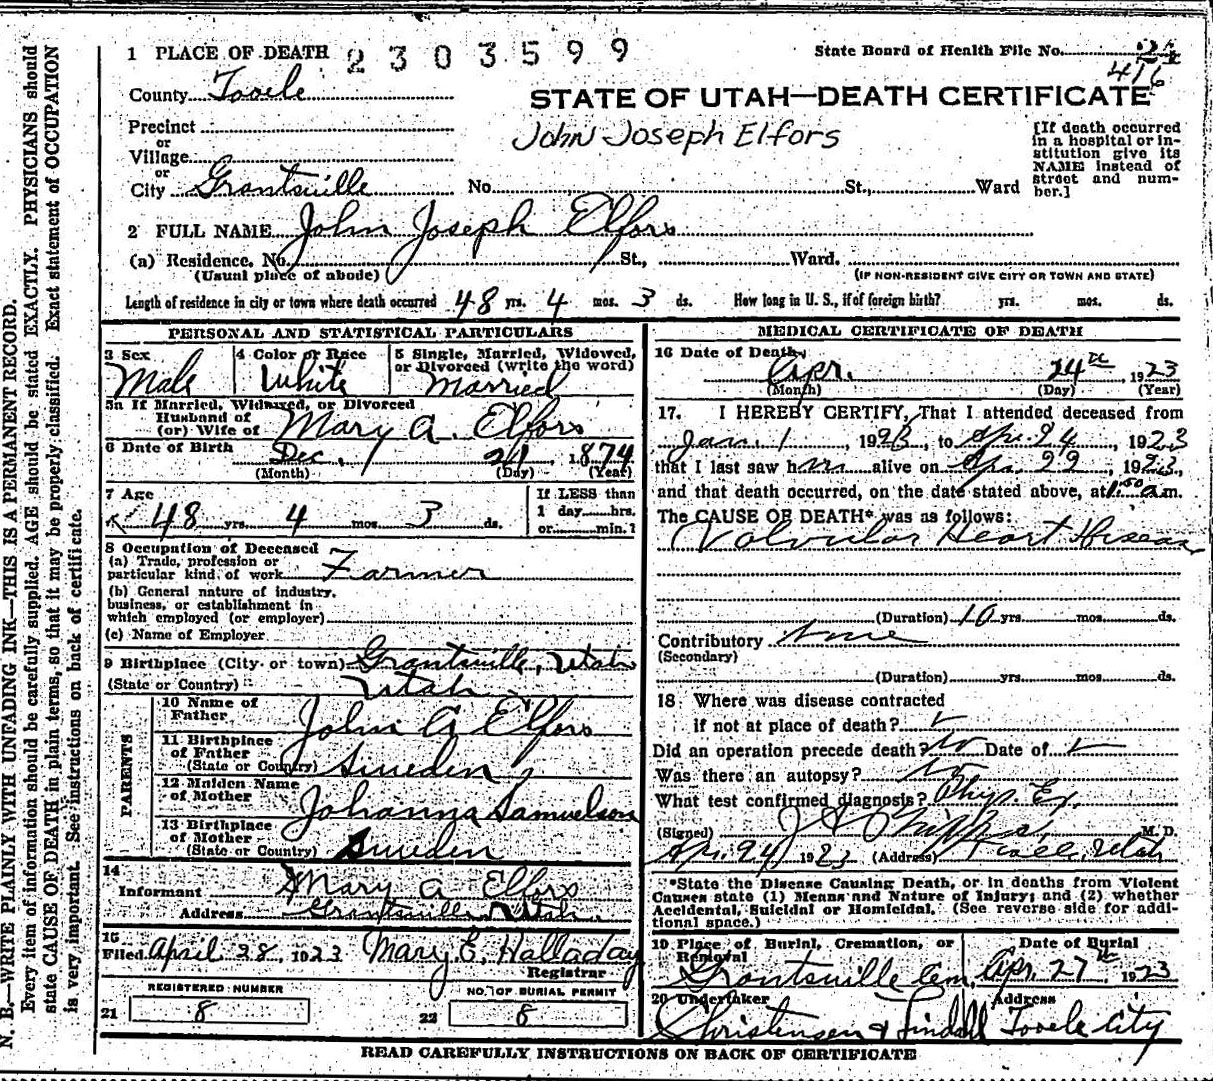 1 PLACE OF DEATH 2303599 State Board of Health File No.
416
County Tooele
STATE OF UTAH—DEATH CERTIFICATE
Precinct
John Joseph Elfors
or
Village
or
City Grantsville No. St., Ward
[If death occurred
in a hospital or in-
stitution give its
NAME instead of
street and num-
ber.]
2 FULL NAME John Joseph Elfors
(a) Residence, No. St., Ward.
(Usual place of abode) (IF NON-RESIDENT GIVE CITY OR TOWN AND STATE)
Length of residence in city or town where death occurred 48 yrs. 4 mos. 3 ds. How long in U. S., if of foreign birth? yrs. mos. ds.
PERSONAL AND STATISTICAL PARTICULARS
3 Sex
Male
4 Color or Race
White
5 Single, Married, Widowed,
or Divorced (write the word)
Married
5a If Married, Widowed, or Divorced
Husband of
(or) Wife of Mary A. Elfors
6 Date of Birth
Dec. 21 1874
(Month) (Day) (Year)
7 Age
48 yrs. 4 mos. 3 ds.
If LESS than
1 day hrs.
or min.?
8 Occupation of Deceased
(a) Trade, profession or
particular kind of work Farmer
(b) General nature of industry,
business, or establishment in
which employed (or employer)
(c) Name of Employer
9 Birthplace (City or town) Grantsville, Utah
(State or Country) Utah
PARENTS
10 Name of
Father John A Elfors
11 Birthplace
of Father
(State or Country) Sweden
12 Maiden Name
of Mother Johanna Samuelson
13 Birthplace
of Mother
(State or Country) Sweden
14
Informant Mary A Elfors
Address Grantsville Utah
15
Filed April 28, 1923 Mary E. Halladay
Registrar
REGISTERED NUMBER
21 8
NO. OF BURIAL PERMIT
22 8
MEDICAL CERTIFICATE OF DEATH
16 Date of Death
Apr. 24th 1923
(Month) (Day) (Year)
17. I HEREBY CERTIFY, That I attended deceased from
Jan. 1, 1923, to Apr. 24, 1923
that I last saw him alive on Apr. 22, 1923,
and that death occurred, on the date stated above, at a.m.
The CAUSE OF DEATH* was as follows:
Valvular Heart Disease
(Duration) 10 yrs. mos. ds.
Contributory None
(Secondary)
(Duration) yrs. mos. ds.
18 Where was disease contracted
if not at place of death?
Did an operation precede death? No Date of
Was there an autopsy? No
What test confirmed diagnosis? Phys. Ex.
(Signed) J A Phipps M. D.
Apr. 24, 1923 (Address) Tooele, Utah
*State the Disease Causing Death, or in deaths from Violent
Causes state (1) Means and Nature of Injury; and (2) whether
Accidental, Suicidal or Homicidal. (See reverse side for addi-
tional space.)
19 Place of Burial, Cremation, or
Removal
Grantsville Cem.
Date of Burial
Apr. 27th 1923
20 Undertaker
Christensen & Lindall
Address
Tooele City
READ CAREFULLY INSTRUCTIONS ON BACK OF CERTIFICATE
N. B.—WRITE PLAINLY WITH UNFADING INK—THIS IS A PERMANENT RECORD.
Every item of information should be carefully supplied. AGE should be stated EXACTLY. PHYSICIANS should
state CAUSE OF DEATH in plain terms, so that it may be properly classified. Exact statement of OCCUPATION
is very important. See instructions on back of certificate.